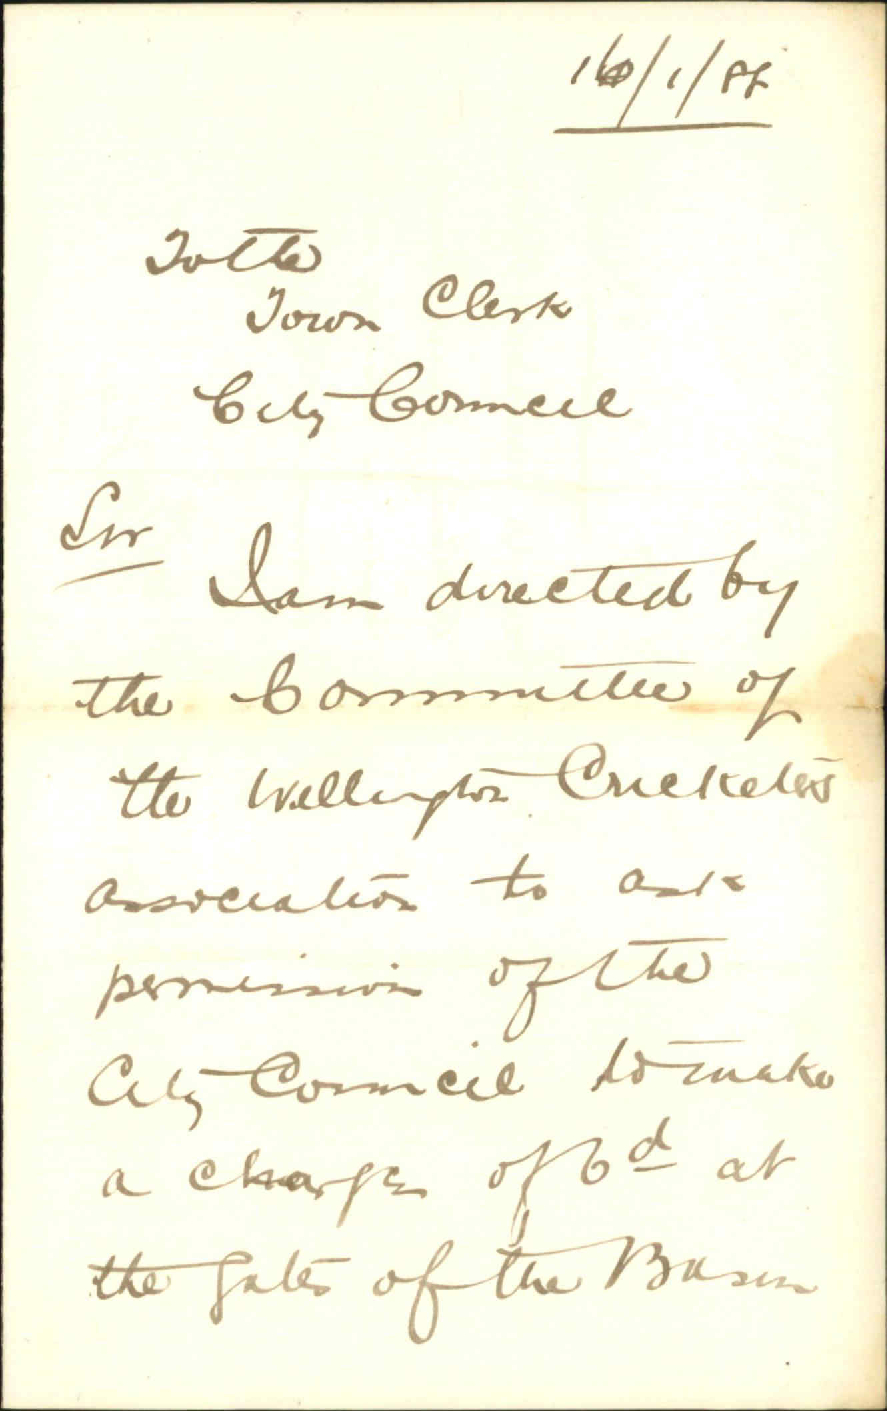 /1/
To the
Town Clerk
City Council
Sir
I am directed by
the Committee of
the Wellington Cricketers
Association to ask
permission of the
City Council to make
a charge of 6d at
the gates of the Basin